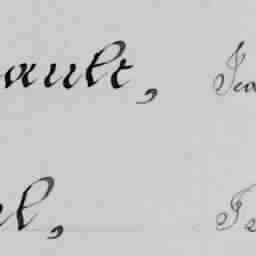 ault, Jea
el, Fe